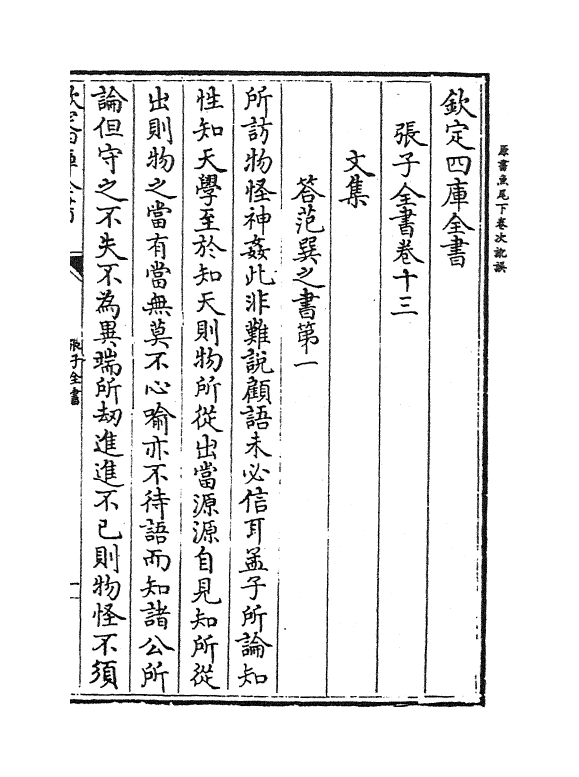 原書魚尾下卷次訛誤
欽定四庫全書
張子全書卷十三
文集
答范巽之書第一
所訪物怪神姦此非難說顧語未必信耳孟子所論知
性知天學至於知天則物所從出當源源自見知所從
出則物之當有當無莫不心喻亦不待語而知諸公所
論但守之不失不為異端所刧進進不已則物怪不須
欽定四庫全書
張子全書
一